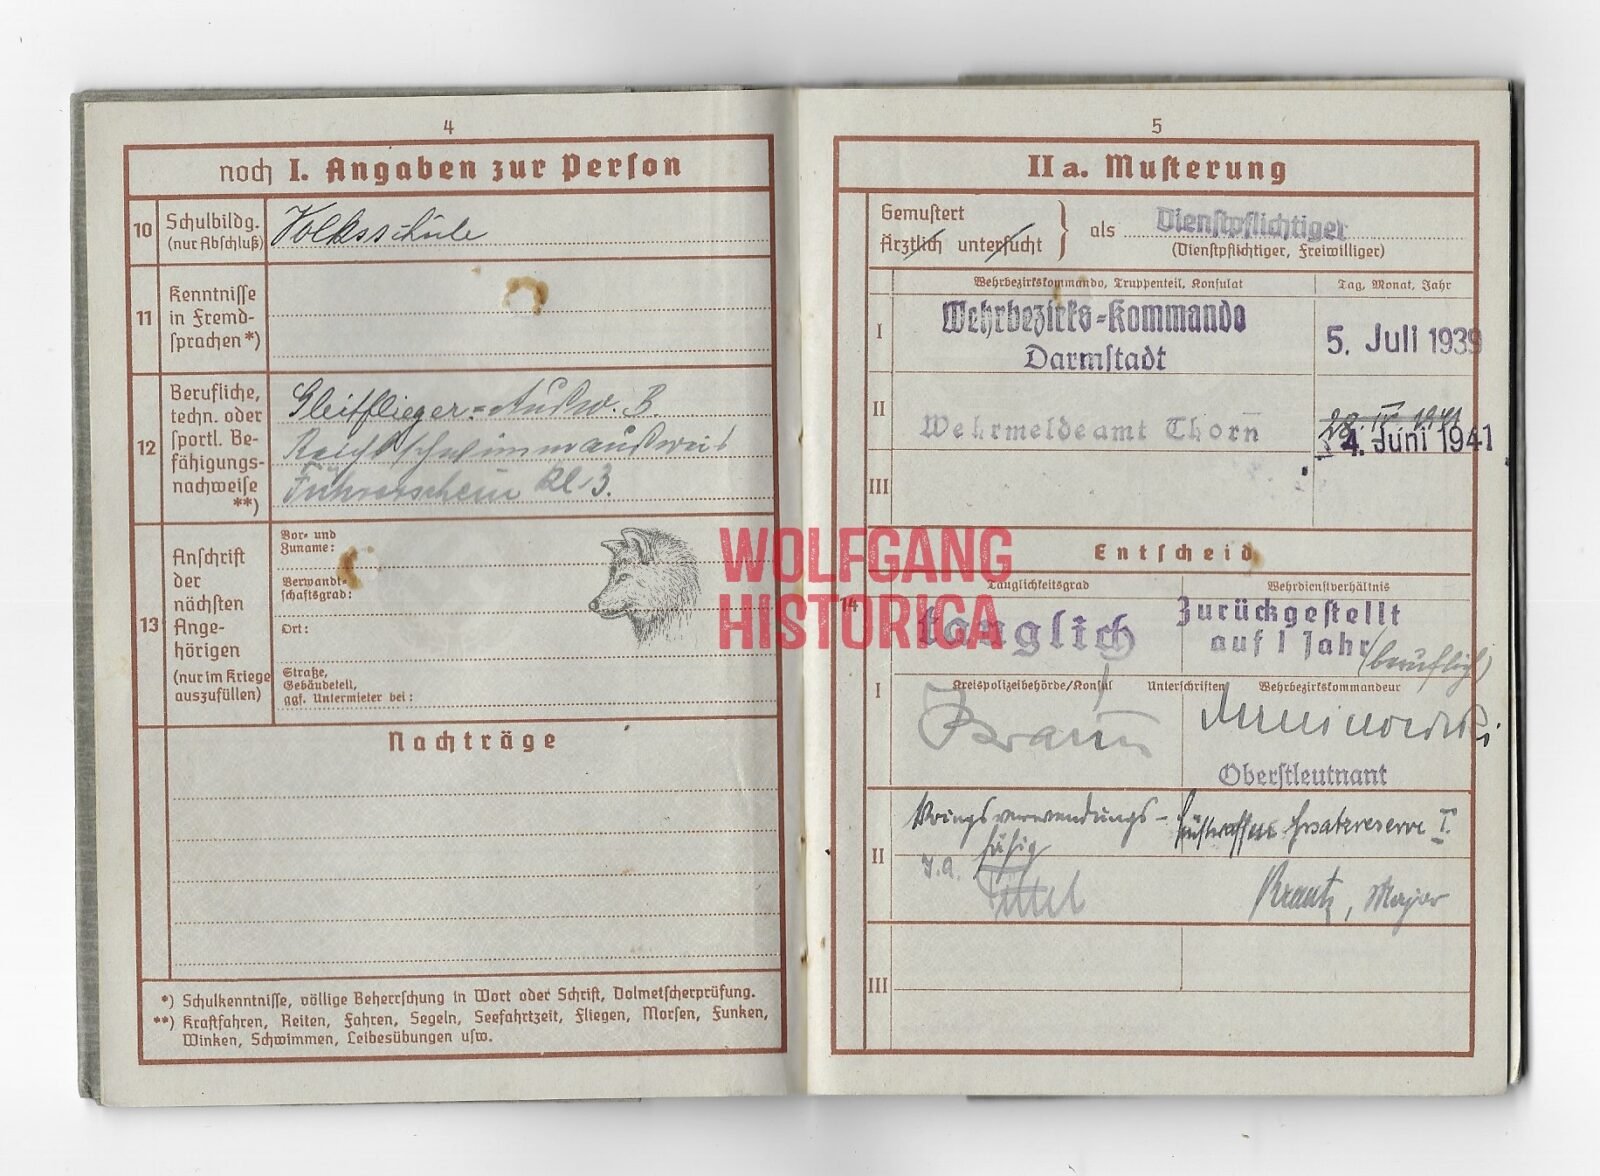 4
noch I. Angaben zur Person
10
Schulbildg.
(nur Abschluß)
Volksschule
11
Kenntnisse
in Fremd-
sprachen *)
12
Berufliche,
techn. oder
sportl. Be-
fähigungs-
nachweise
**)
Gleitflieger-Ausw. B.
Reichsschwimmausweis
Führerschein Kl. 3.
13
Anschrift
der
nächsten
Ange-
hörigen
(nur im Kriege
auszufüllen)
Vor- und
Zuname:
Verwandt-
schaftsgrad:
Ort:
Straße,
Gebäudeteil,
ggf. Untermieter bei:
Nachträge
*) Schulkenntnisse, völlige Beherrschung in Wort oder Schrift, Dolmetscherprüfung.
**) Kraftfahren, Reiten, Fahren, Segeln, Seefahrtzeit, Fliegen, Morsen, Funken,
Winken, Schwimmen, Leibesübungen usw.
WOLFGANG
HISTORICA
5
II a. Musterung
Gemustert
Ärztlich untersucht
als
Dienstpflichtiger
(Dienstpflichtiger, Freiwilliger)
Wehrbezirkskommando, Truppenteil, Konsulat
Tag, Monat, Jahr
I
Wehrbezirks-Kommando
Darmstadt
5. Juli 1939
II
Wehrmeldeamt Thorn
28. IV. 1941
4. Juni 1941
III
Entscheid
14
Tauglichkeitsgrad
Wehrdienstverhältnis
tauglich
Zurückgestellt
auf 1 Jahr
(beruflich)
I
Kreispolizeibehörde/Konsul
Unterschriften
Wehrbezirkskommandeur
Braun
Oberstleutnant
II
Kriegsverwendungs-
fähig
Ersatzreserve I.
I.A.
Major
III